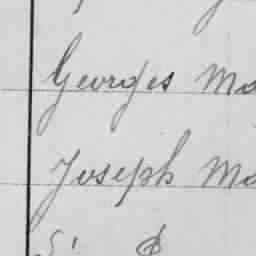 Georges Ma
Joseph Ma